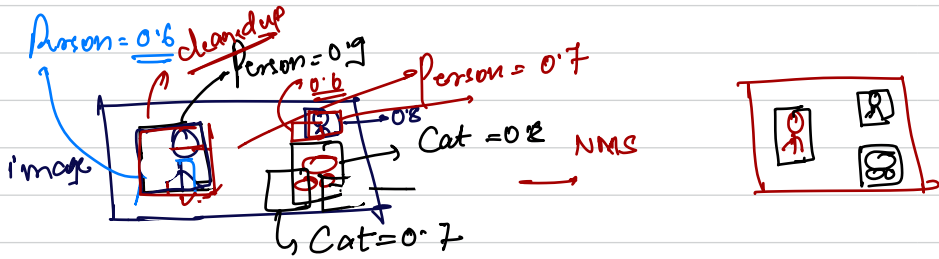 Person = 0.6
cleaned up
Person = 0.9
0.6
Person = 0.7
0.8
Cat = 0.8
image
NMS
Cat = 0.7